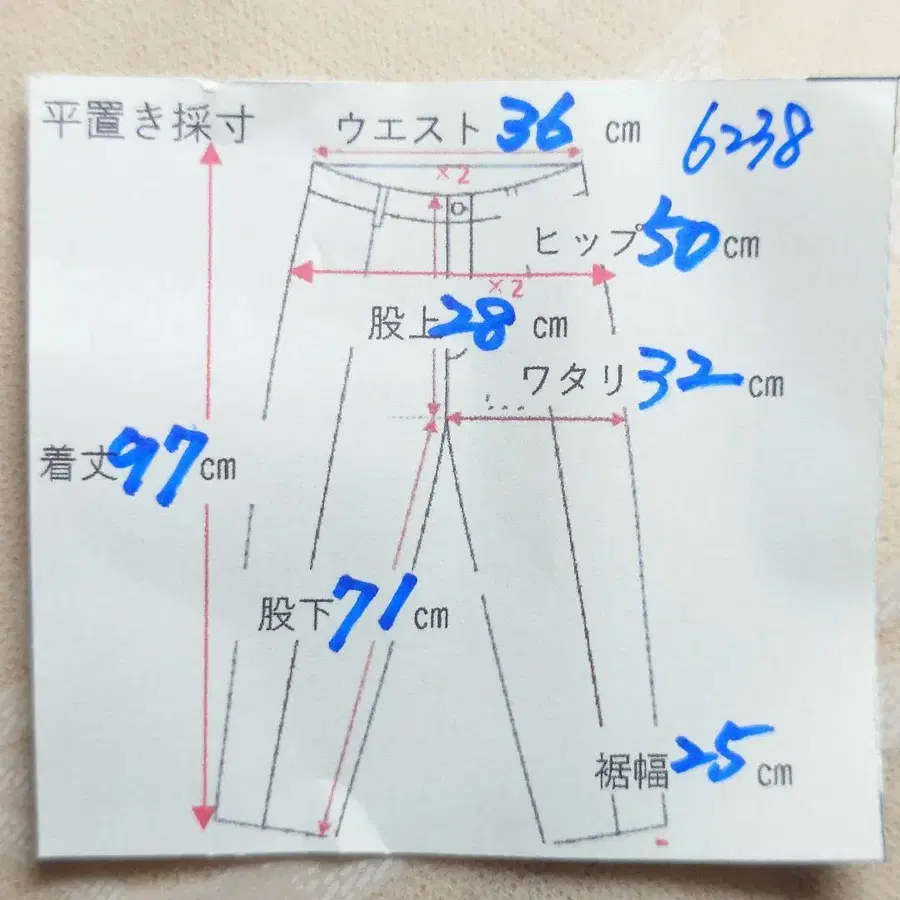 平置き採寸
ウエスト 36 cm
6238
×2
ヒップ 50 cm
×2
股上 28 cm
ワタリ 32 cm
着丈 97 cm
股下 71 cm
裾幅 25 cm